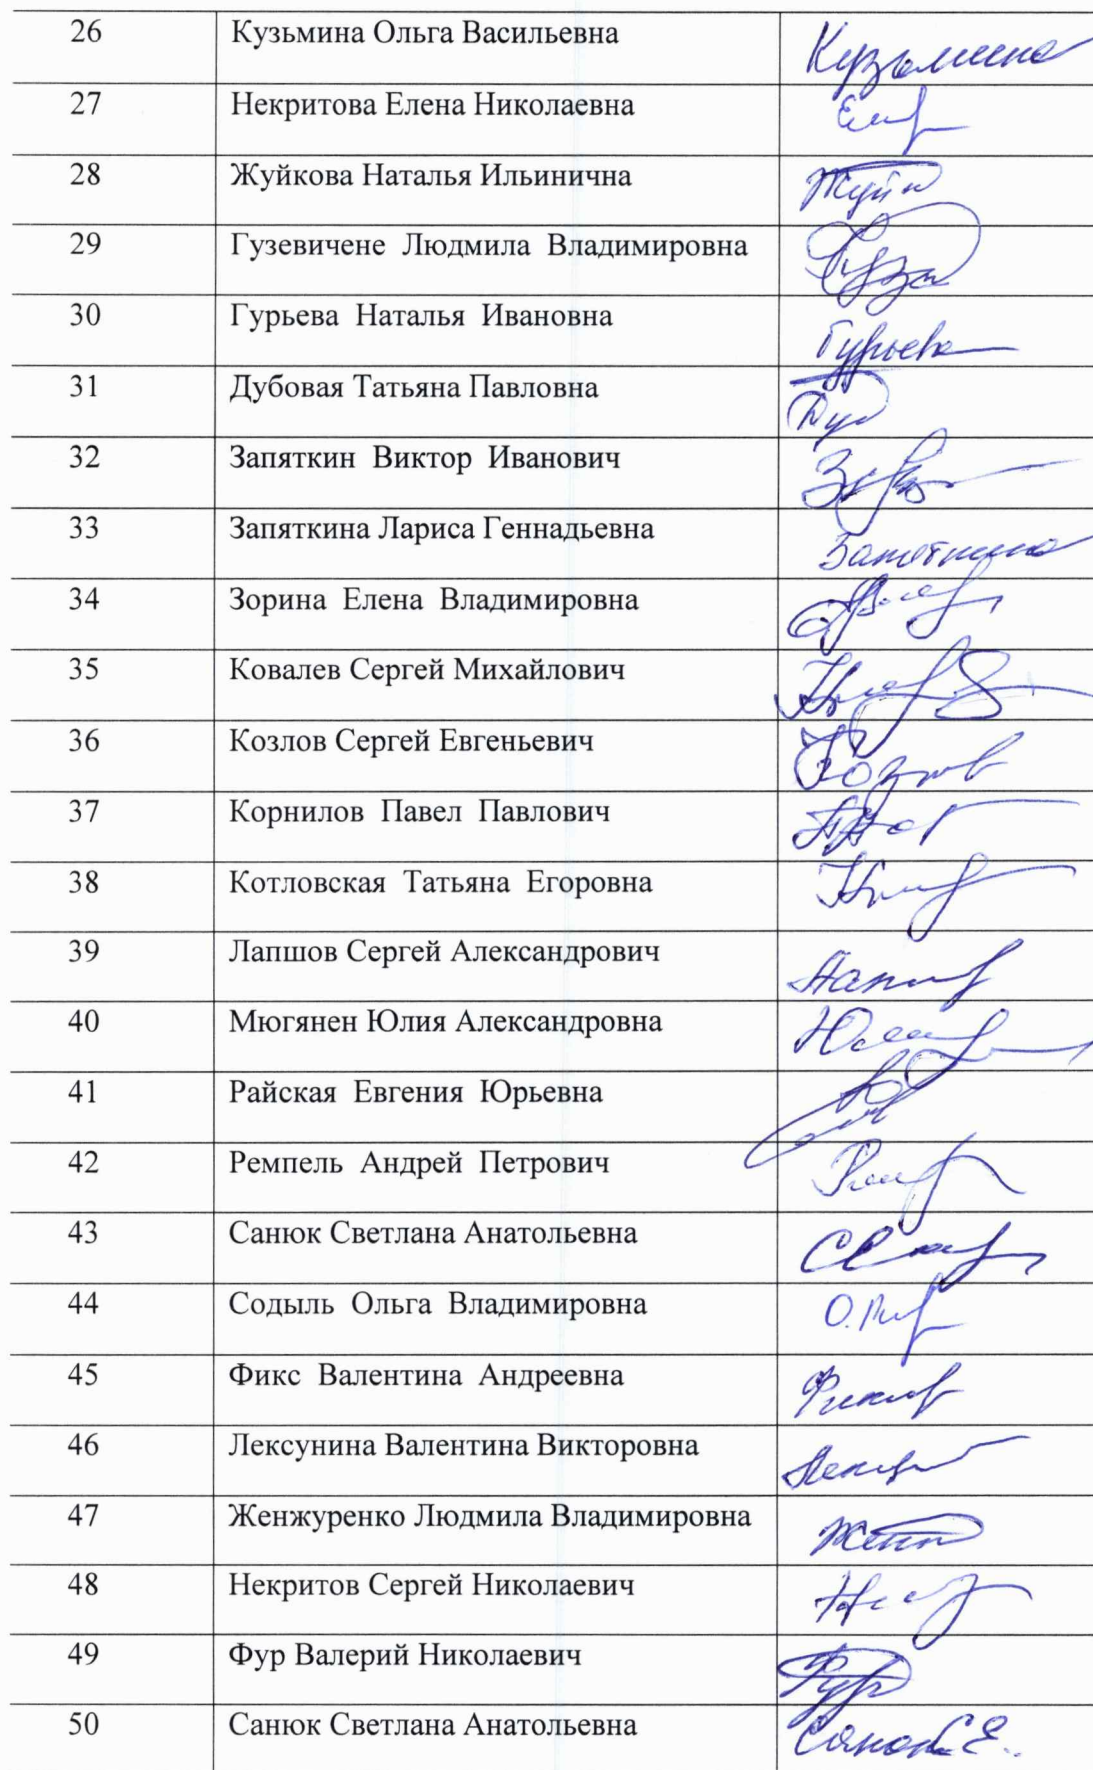 26 Кузьмина Ольга Васильевна Кузьмина
27 Некритова Елена Николаевна
28 Жуйкова Наталья Ильинична
29 Гузевичене Людмила Владимировна
30 Гурьева Наталья Ивановна Гурьева
31 Дубовая Татьяна Павловна
32 Запяткин Виктор Иванович
33 Запяткина Лариса Геннадьевна
34 Зорина Елена Владимировна
35 Ковалев Сергей Михайлович
36 Козлов Сергей Евгеньевич Козлов
37 Корнилов Павел Павлович
38 Котловская Татьяна Егоровна
39 Лапшов Сергей Александрович
40 Мюгянен Юлия Александровна
41 Райская Евгения Юрьевна
42 Ремпель Андрей Петрович
43 Санюк Светлана Анатольевна
44 Содыль Ольга Владимировна
45 Фикс Валентина Андреевна
46 Лексунина Валентина Викторовна
47 Женжуренко Людмила Владимировна
48 Некритов Сергей Николаевич
49 Фур Валерий Николаевич Фур
50 Санюк Светлана Анатольевна